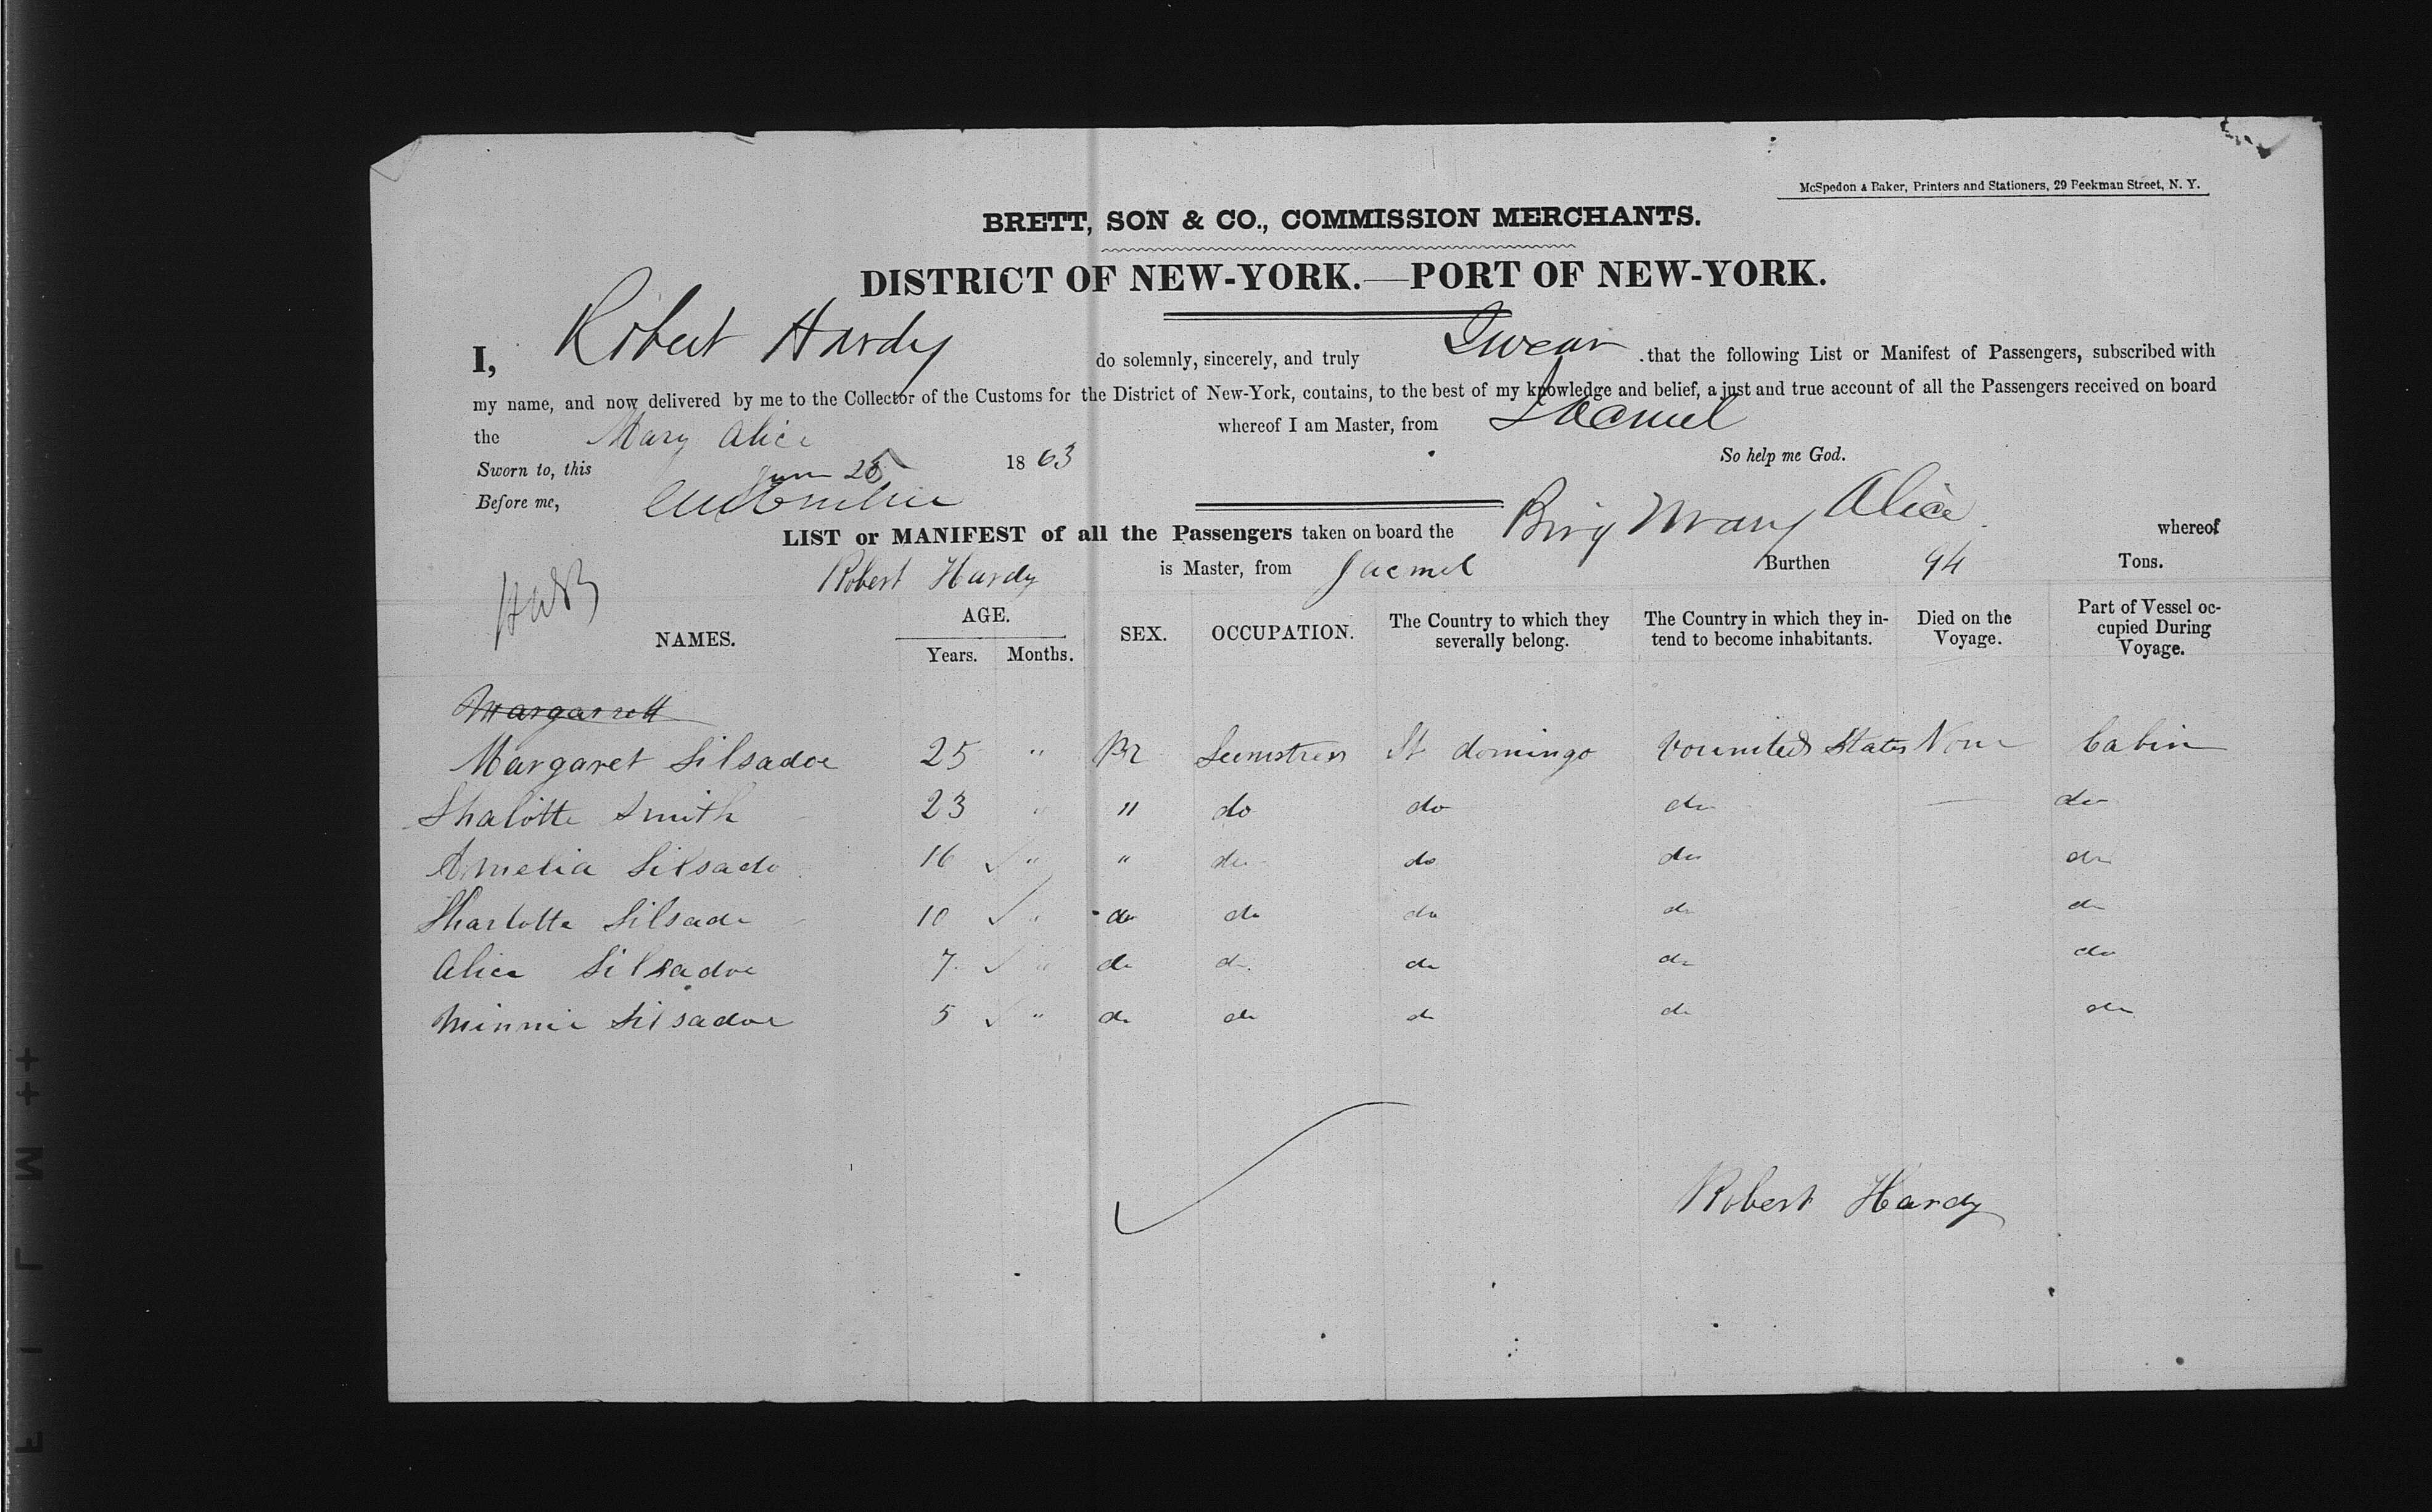 McSpedon & Baker, Printers and Stationers, 29 Beekman Street, N. Y.
BRETT, SON & CO., COMMISSION MERCHANTS.
DISTRICT OF NEW-YORK.—PORT OF NEW-YORK.
I, Robert Hardy do solemnly, sincerely, and truly Swear that the following List or Manifest of Passengers, subscribed with
my name, and now delivered by me to the Collector of the Customs for the District of New-York, contains, to the best of my knowledge and belief, a just and true account of all the Passengers received on board
the Mary Alice whereof I am Master, from Jacmel
Sworn to, this June 25 1863 So help me God.
Before me,
LIST or MANIFEST of all the Passengers taken on board the Brig Mary Alice whereof
Robert Hardy is Master, from Jacmel Burthen 94 Tons.
NAMES. AGE. Years. Months. SEX. OCCUPATION. The Country to which they severally belong. The Country in which they intend to become inhabitants. Died on the Voyage. Part of Vessel occupied During Voyage.
Margarrett
Margaret Silsadoe 25 " Seemstress St domingo United States None Cabin
Shalotte Smith 23 " " do do do do
Amelia Silsado 16 " " do do do do
Sharlotte Silsade 10 " do do do do do
Alice Silsadoe 7 " do do do do do
Minnie Silsadoe 5 " do do do do do
Robert Hardy
FILM ++